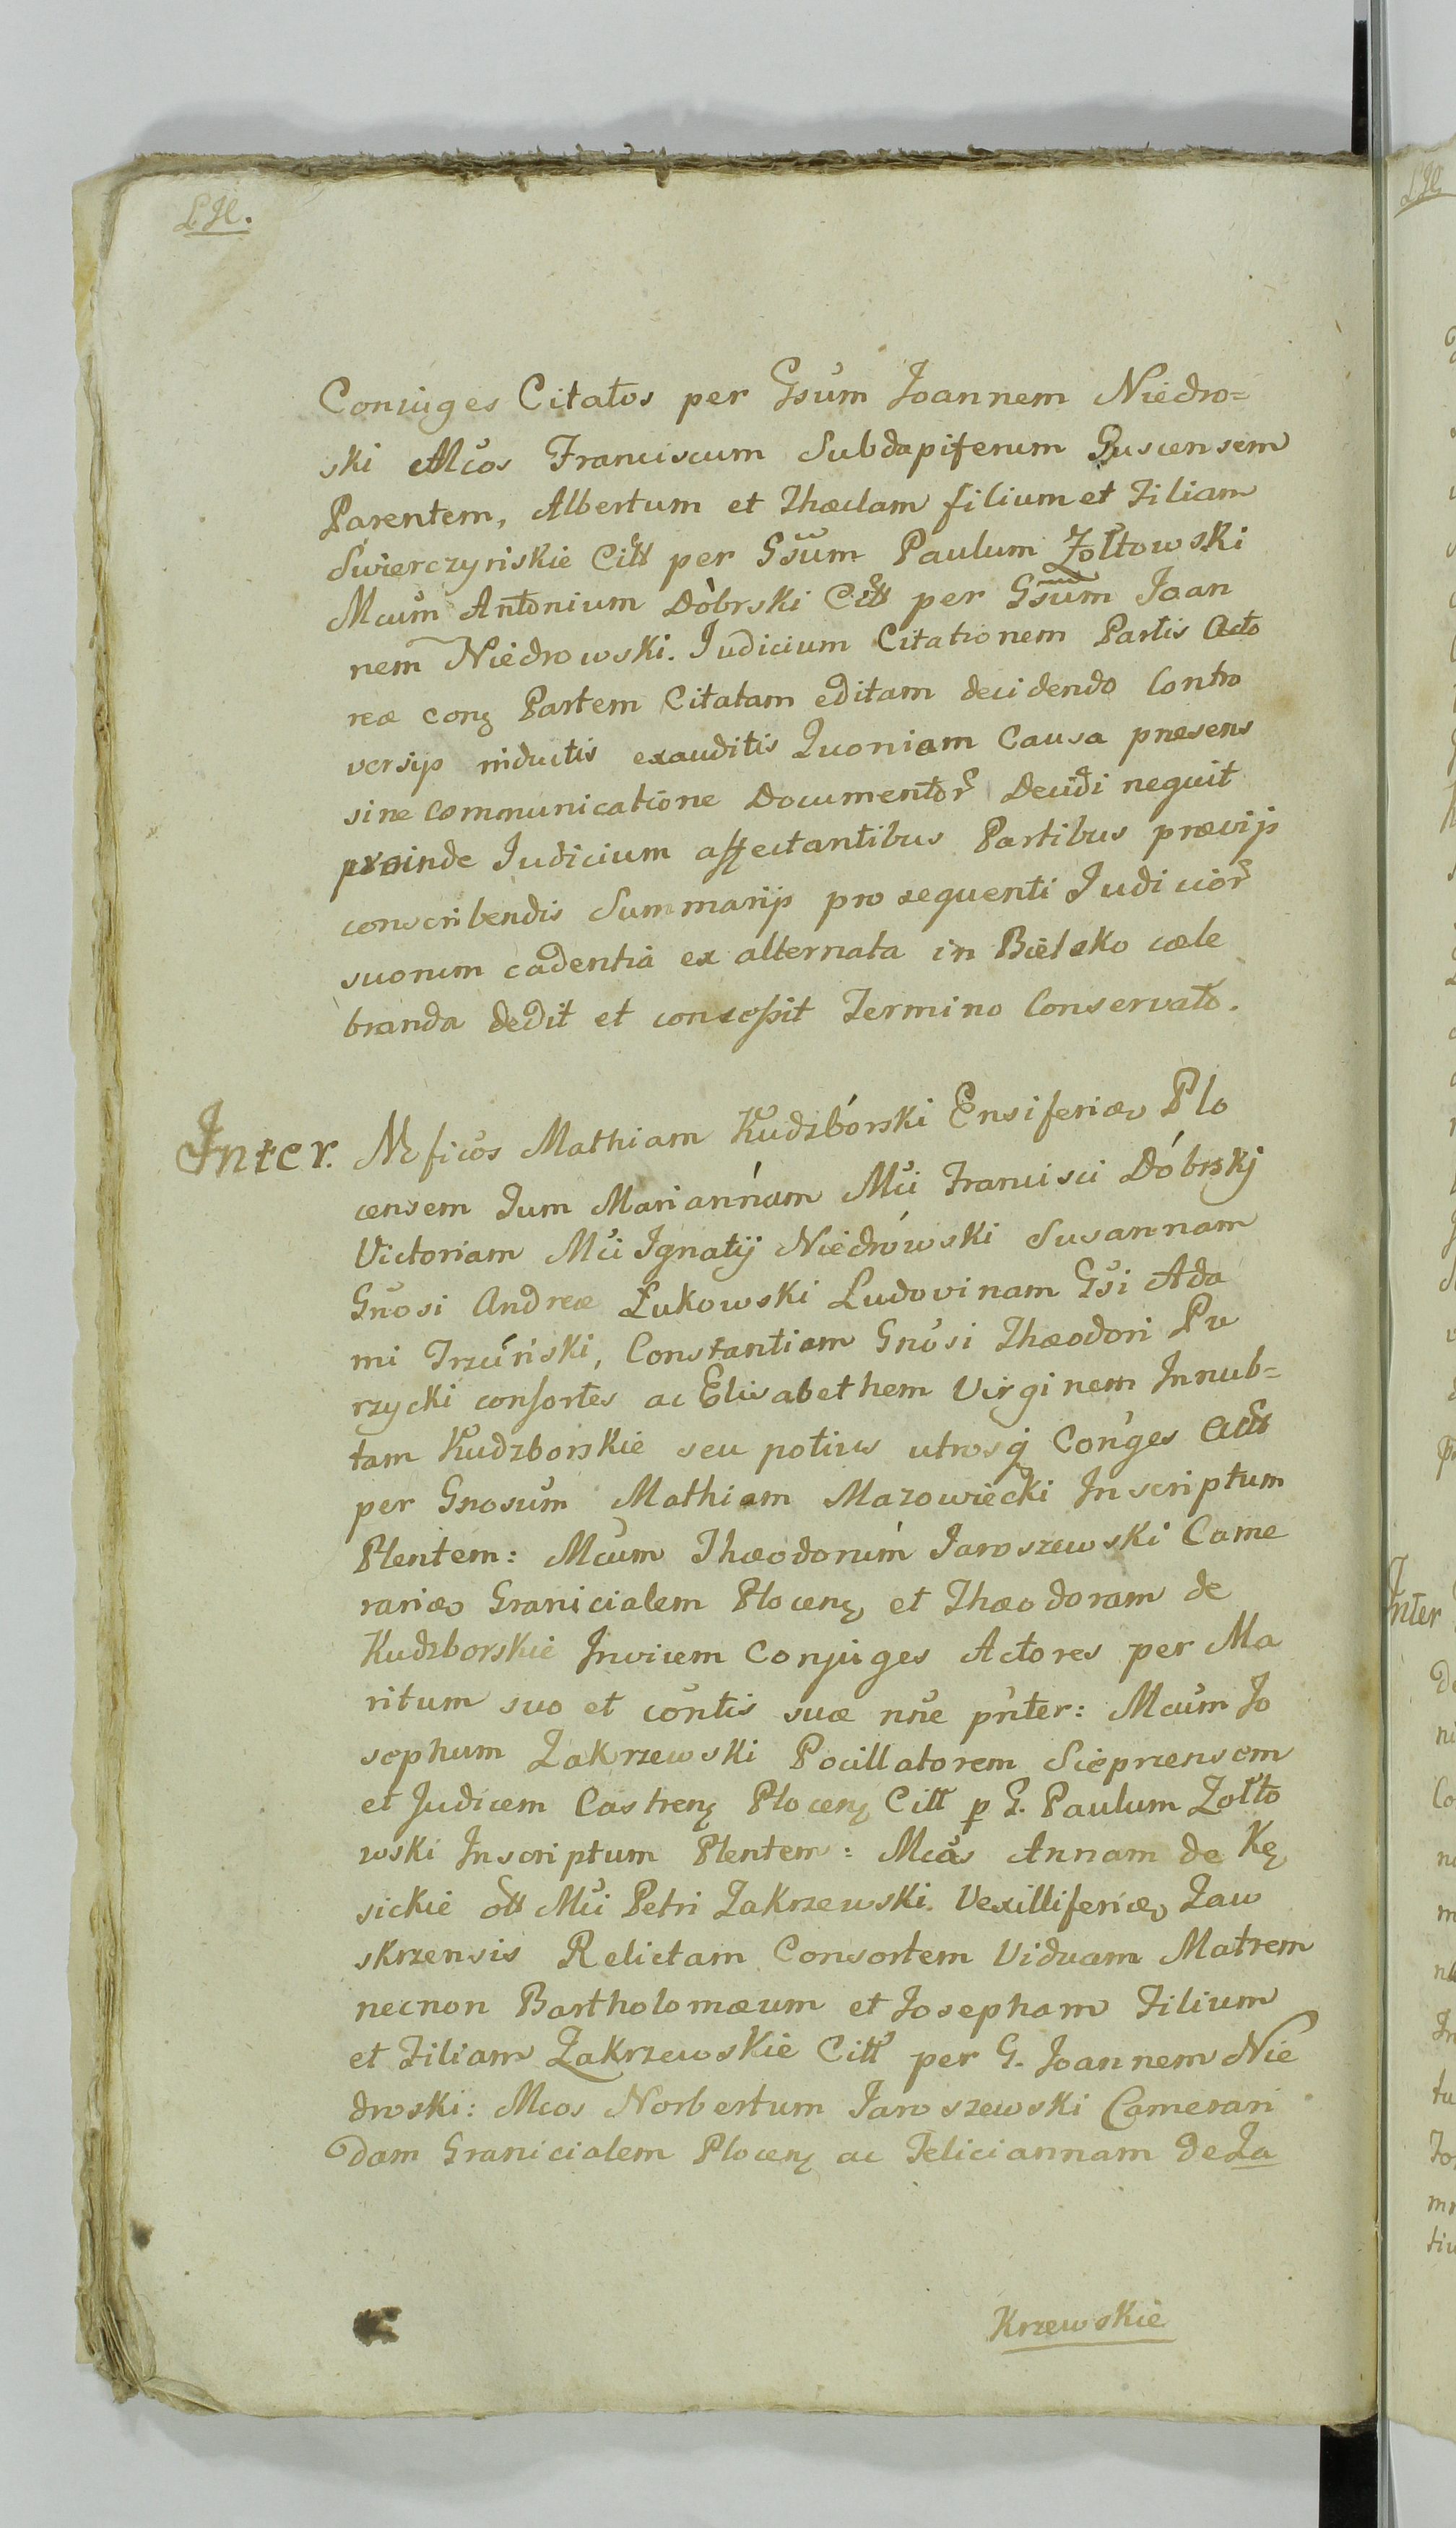 Coniuges Citatos per Gsum Joannem Niedro=
ski Mcos Franciscum Subdapiferum Guscensem
Parentem, Albertum et Thæclam filium et Filiam
Swierczynskie Citt per Gsum Paulum Zołtowski
Mcum Antonium Dobrski Citt per Gsum Joan
nem Niedrowski. Judicium Citationem Partis Acto
reæ conq Partem Citatam editam decidendo Contro
versijs inductis exauditis Quoniam Causa præsens
sine communicatione Documentor Decidi nequit
proinde Judicium affectantibus Partibus prævijs
conscribendis Summarijs pro sequenti Judicior
suorum cadentia ex alternata in Bielsko cæle
branda dedit et concessit Termino Conservato.
Inter. Mficos Mathiam Kudzbórski Ensiferiæ Plo
censem Tum Mariannam Mci Francisci Dóbrskj
Victoriam Mci Ignatij Niedrówski Susannam
Gnosi Andreæ Łukowski Ludovinam Gsi Ada
mi Trzciński, Constantiam Gnosi Thæodori Pu
rzycki consortes ac Elisabethem Virginem Innub=
tam Kudzborskie seu potius utrosq Conges Actt
per Gnosum Mathiam Mazowiecki Inscriptum
Plentem: Mcum Thæodorum Jaroszewski Came
rariæ Granicialem Plocenq et Thæodoram de
Kudzborskie Invicem Conjuges Actores per Ma
ritum suo et contis suæ nne pnter: Mcum Jo
sephum Zakrzewski Pocillatorem Sieprzensem
et Judicem Castrenq Plocenq Citt p G. Paulum Zołto
wski Inscriptum Plentem: Mcas Annam de Kę
sickie ott Mci Petri Zakrzewski Vexilliferiæ Zaw
skrzensis Relictam Consortem Viduam Matrem
necnon Bartholomæum et Josepham Filium
et Filiam Zakrzewskie Citt per G. Joannem Nie
droski: Mcos Norbertum Jaroszewski Camerari
dam Granicialem Plocenq ac Feliciannam de Za
Krzewskie